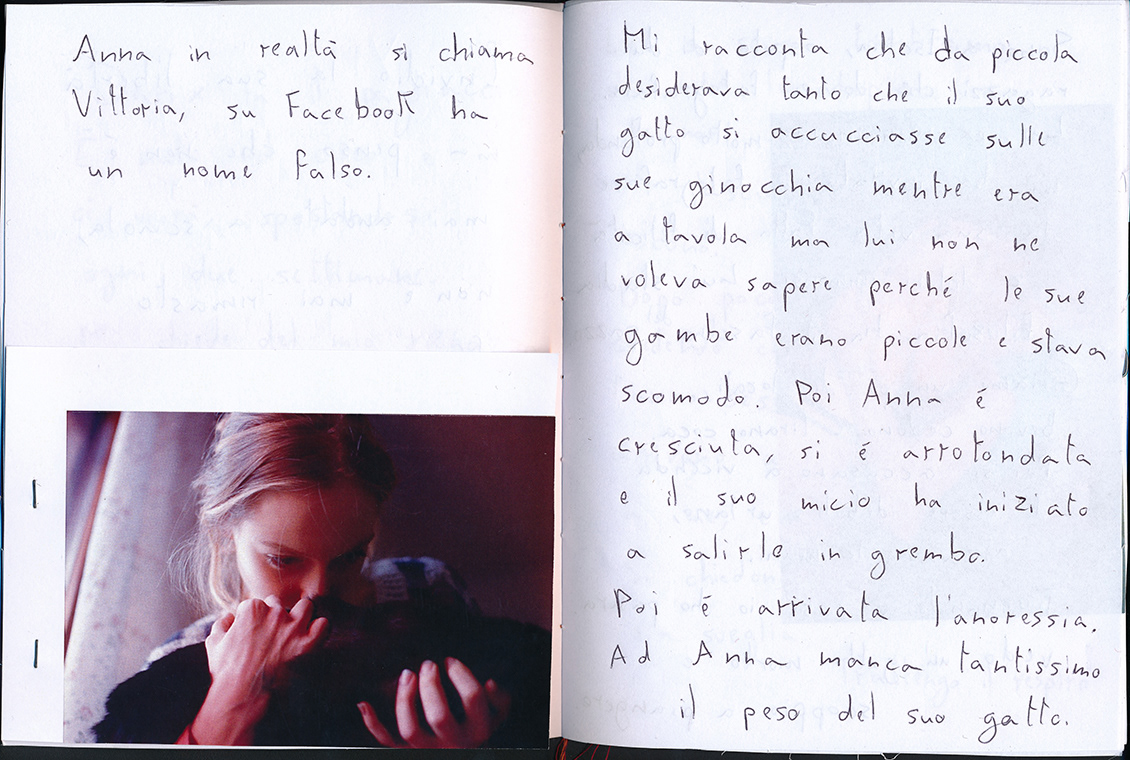 Anna in realtà si chiama
Vittoria, su Facebook ha
un nome falso.
Mi racconta che da piccola
desiderava tanto che il suo
gatto si accucciasse sulle
sue ginocchia mentre era
a tavola ma lui non ne
voleva sapere perché le sue
gambe erano piccole e stava
scomodo. Poi Anna é
cresciuta, si é arrotondata
e il suo micio ha iniziato
a salirle in grembo.
Poi é arrivata l'anoressia.
Ad Anna manca tantissimo
il peso del suo gatto.